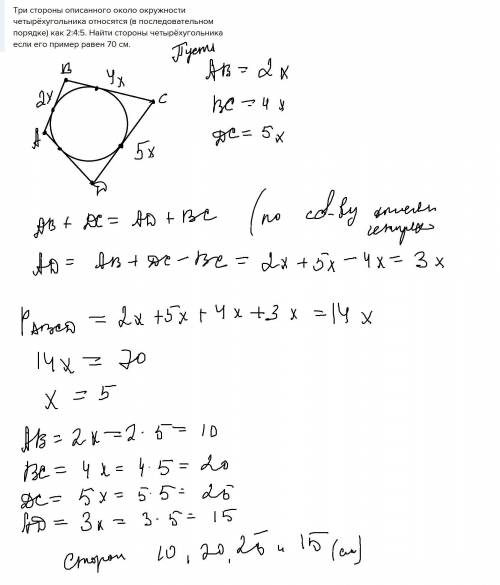 Три стороны описанного около окружности
четырёхугольника относятся (в последовательном
порядке) как 2:4:5. Найти стороны четырёхугольника
если его пример равен 70 см.
Пусть
AB = 2x
BC = 4x
DC = 5x
B
4x
2x
C
A
5x
D
AB + DC = AD + BC (по св-ву
AD = AB + DC - BC = 2x + 5x - 4x = 3x
P ABCD = 2x + 5x + 4x + 3x = 14x
14x = 70
x = 5
AB = 2x = 2 · 5 = 10
BC = 4x = 4 · 5 = 20
DC = 5x = 5 · 5 = 25
AD = 3x = 3 · 5 = 15
Сторон 10, 20, 25 и 15 (см)